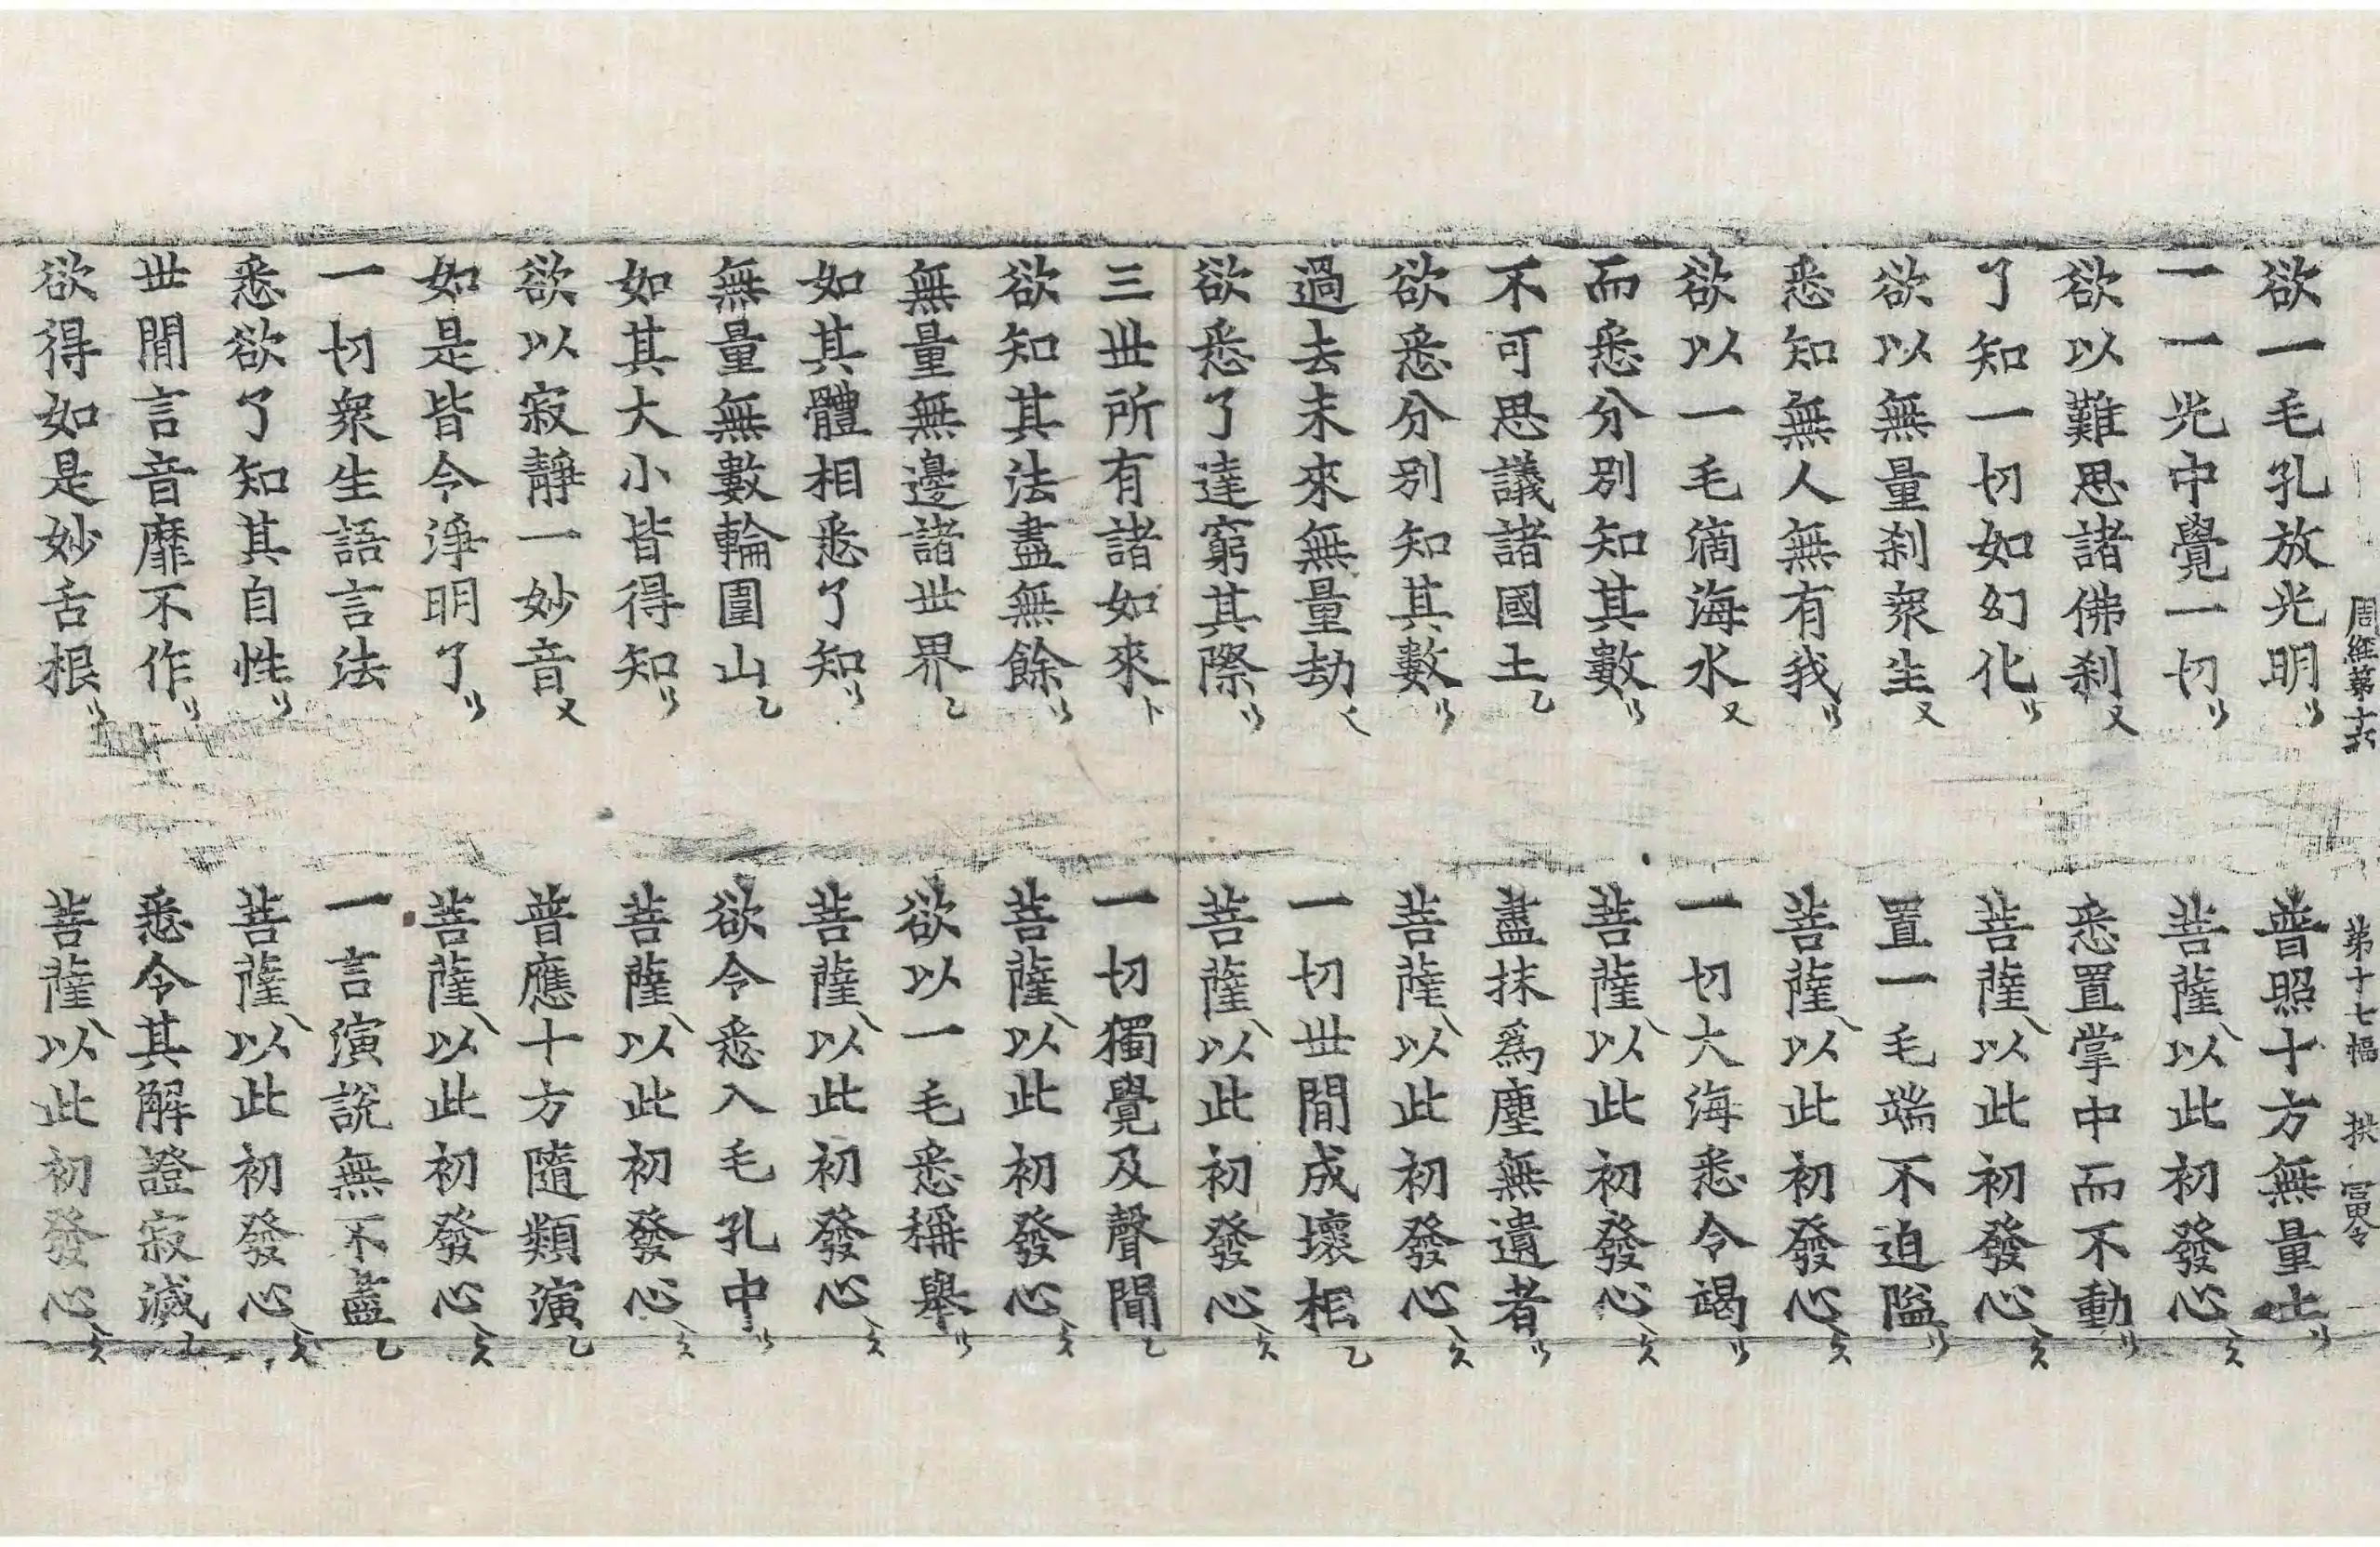 周經第 第十七幅 拱
欲一毛孔放光明 普照十方無量土
一一光中覺一切 菩薩以此初發心
欲以難思諸佛刹 悉置掌中而不動
了知一切如幻化 菩薩以此初發心
欲以無量刹衆生 置一毛端不迫隘
悉知無人無有我 菩薩以此初發心
欲以一毛滴海水 一切大海悉令竭
而悉分別知其數 菩薩以此初發心
不可思議諸國土 盡抹爲塵無遺者
欲悉分別知其數 菩薩以此初發心
過去未來無量劫 一切世間成壞相
欲悉了達窮其際 菩薩以此初發心
三世所有諸如來 一切獨覺及聲聞
欲知其法盡無餘 菩薩以此初發心
無量無邊諸世界 欲以一毛悉稱舉
如其體相悉了知 菩薩以此初發心
無量無數輪圍山 欲令悉入毛孔中
如其大小皆得知 菩薩以此初發心
欲以寂靜一妙音 普應十方隨類演
如是皆令淨明了 菩薩以此初發心
一切衆生語言法 一言演說無不盡
悉欲了知其自性 菩薩以此初發心
世間言音靡不作 悉令其解證寂滅
欲得如是妙舌根 菩薩以此初發心